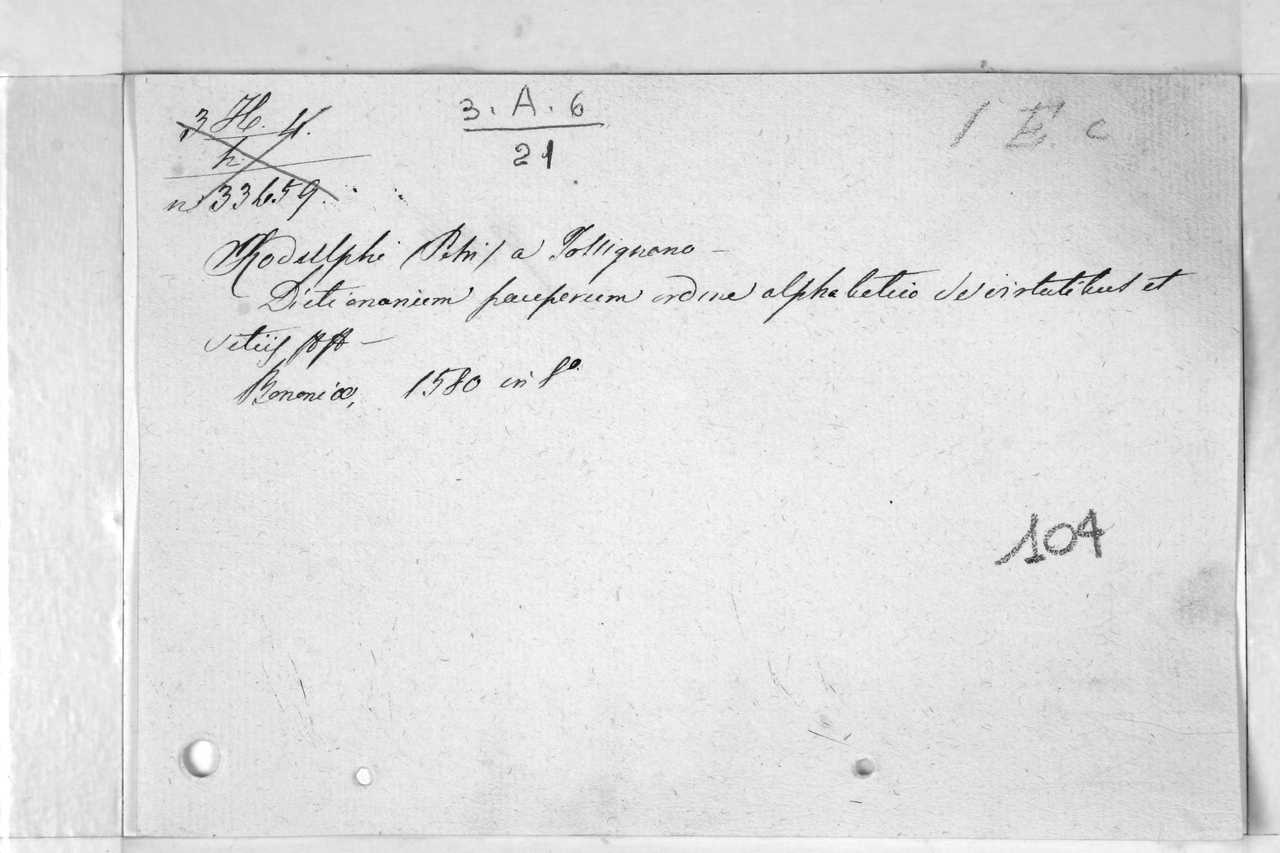 3 H. 4.
h.
n. 33659.
3. A. 6
21
1 E. c
Rodulphi (Petri) a Tossignano —
Dictionarium pauperum ordine alphabetico de virtutibus et
vitiis —
Bononiæ, 1580 in 8°.
104